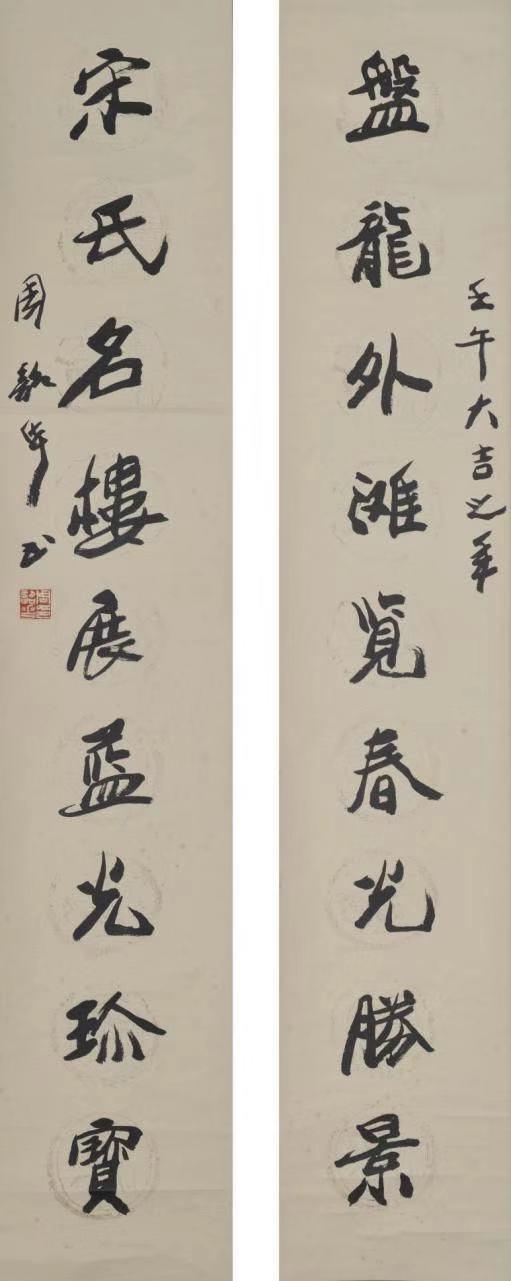 盤龍外滩览春光勝景
壬午大吉之年
宋氏名樓展藍光珍寶
周